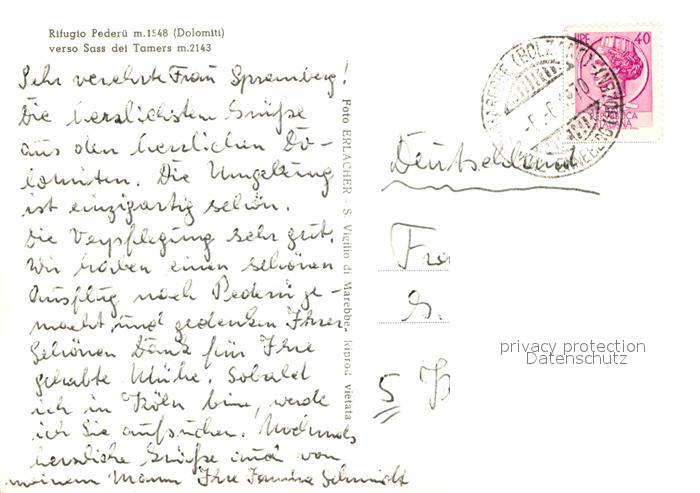 Rifugio Pederü m.1548 (Dolomiti)
verso Sass dei Tamers m.2143
Sehr verehrte Frau Spremberg!
Die herzlichsten Grüße
aus den herrlichen Do-
lomiten. Die Umgebung
ist einzigartig schön.
Die Verpflegung sehr gut.
Wir haben einen schönen
Ausflug nach Pederü ge-
macht und gedenken Ihrer.
Schönen Dank für Ihre
gehabte Mühe. Sobald
ich in Köln bin, werde
ich Sie aufsuchen. Nochmals
herzliche Grüße auch von
meinem Mann Ihre Schmidt
Foto ERLACHER - S. Vigilio di Marebbe - riprod. vietata
LIRE 40
REPUBBLICA
ITALIANA
(BOLZANO)
Deutschland
Fra
G.
5
privacy protection
Datenschutz